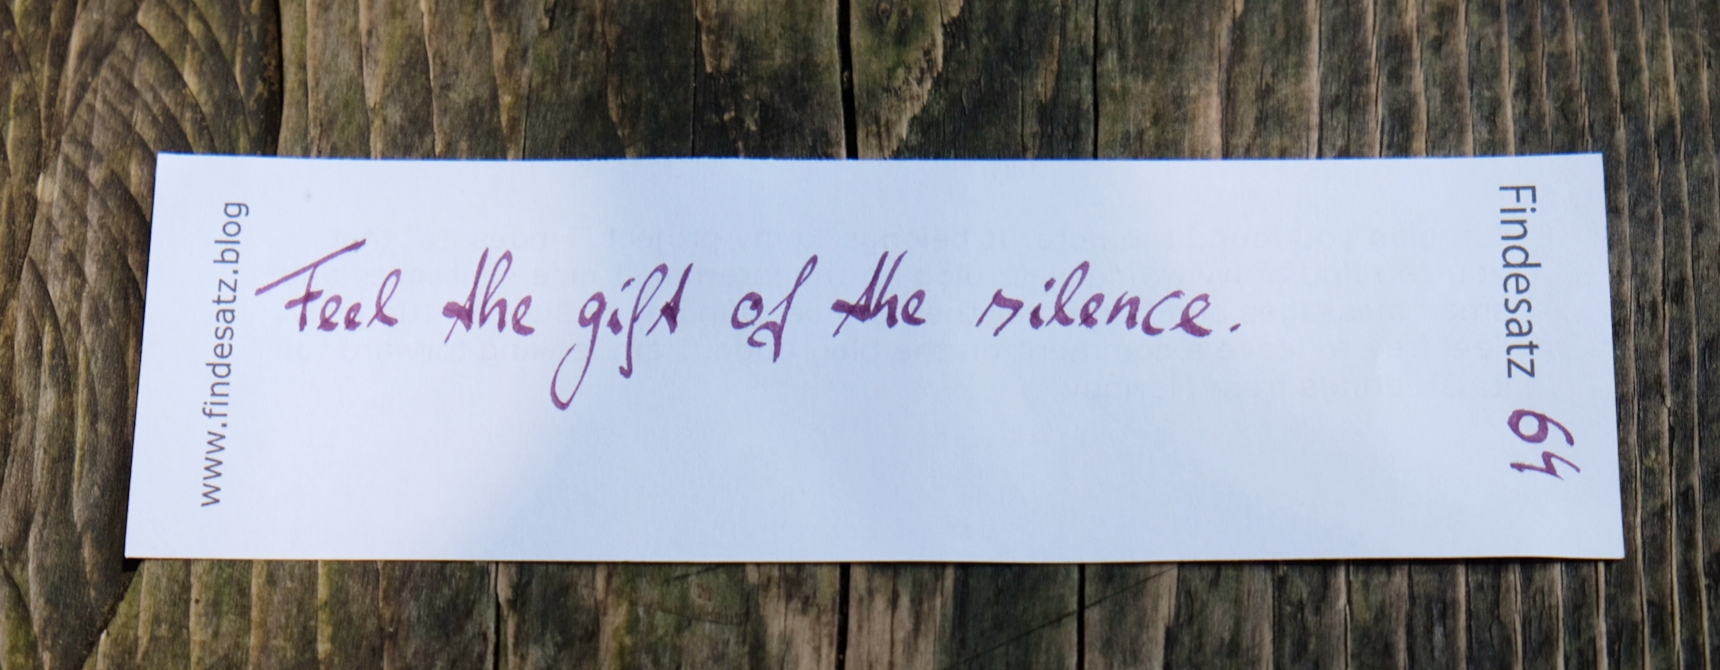 www.findesatz.blog
Feel the gift of the silence.
Findesatz 64